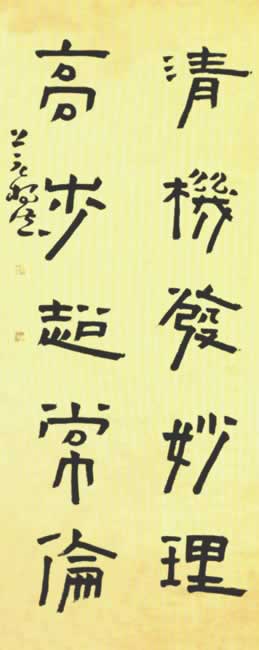 清機發妙理
高步超常倫